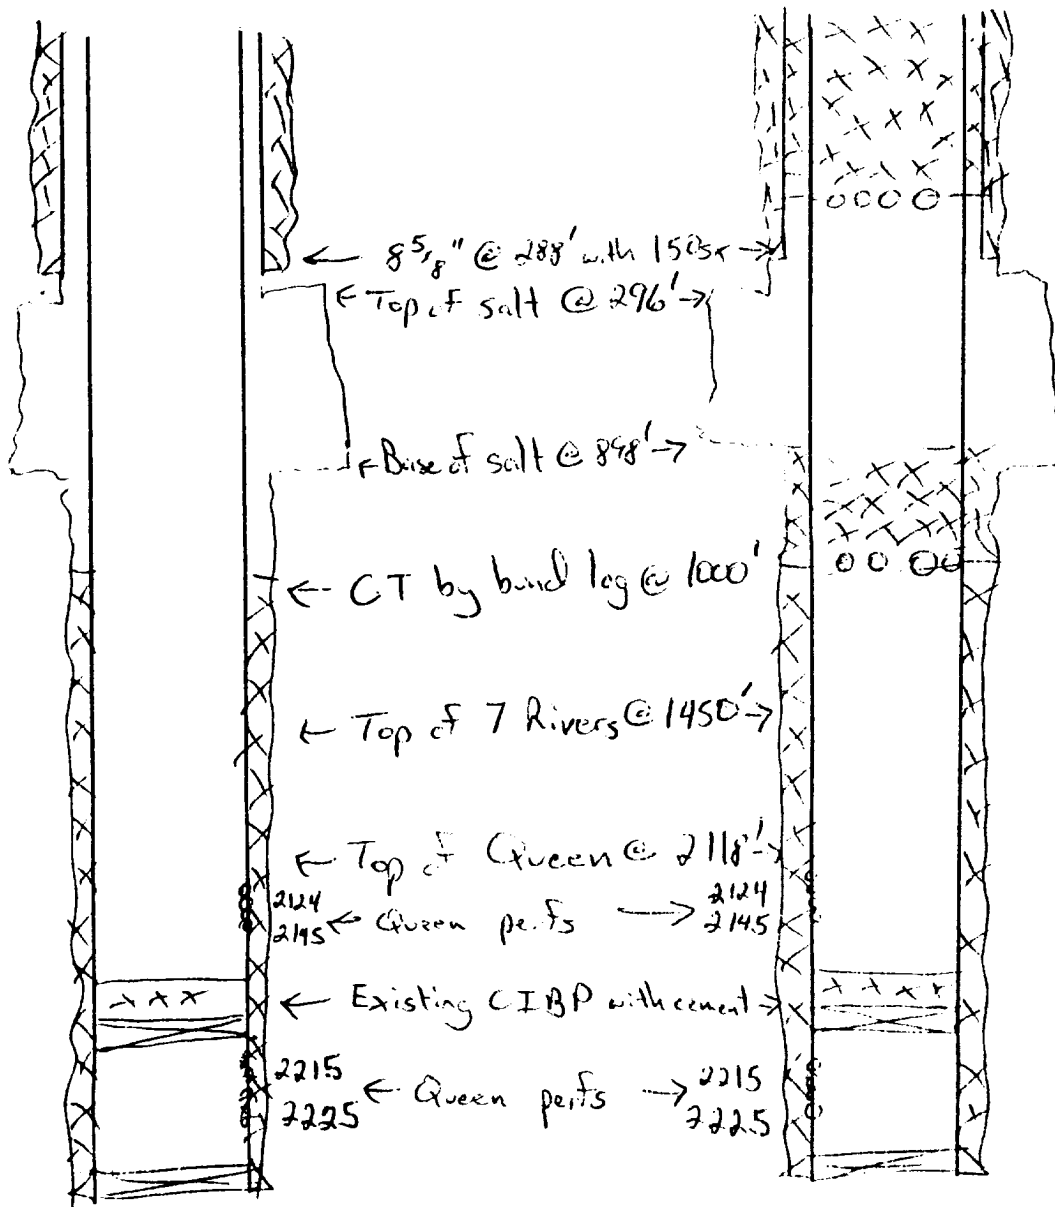 ← 8 5/8" @ 288' with 150sx →
← Top of salt @ 296' →
← Base of salt @ 898' →
← CT by bond log @ 1000'
← Top of 7 Rivers @ 1450' →
← Top of Queen @ 2118' →
2124 2124
2145 ← Queen perfs → 2145
← Existing CIBP with cement →
2215 ← Queen perfs → 2215
2225 2225